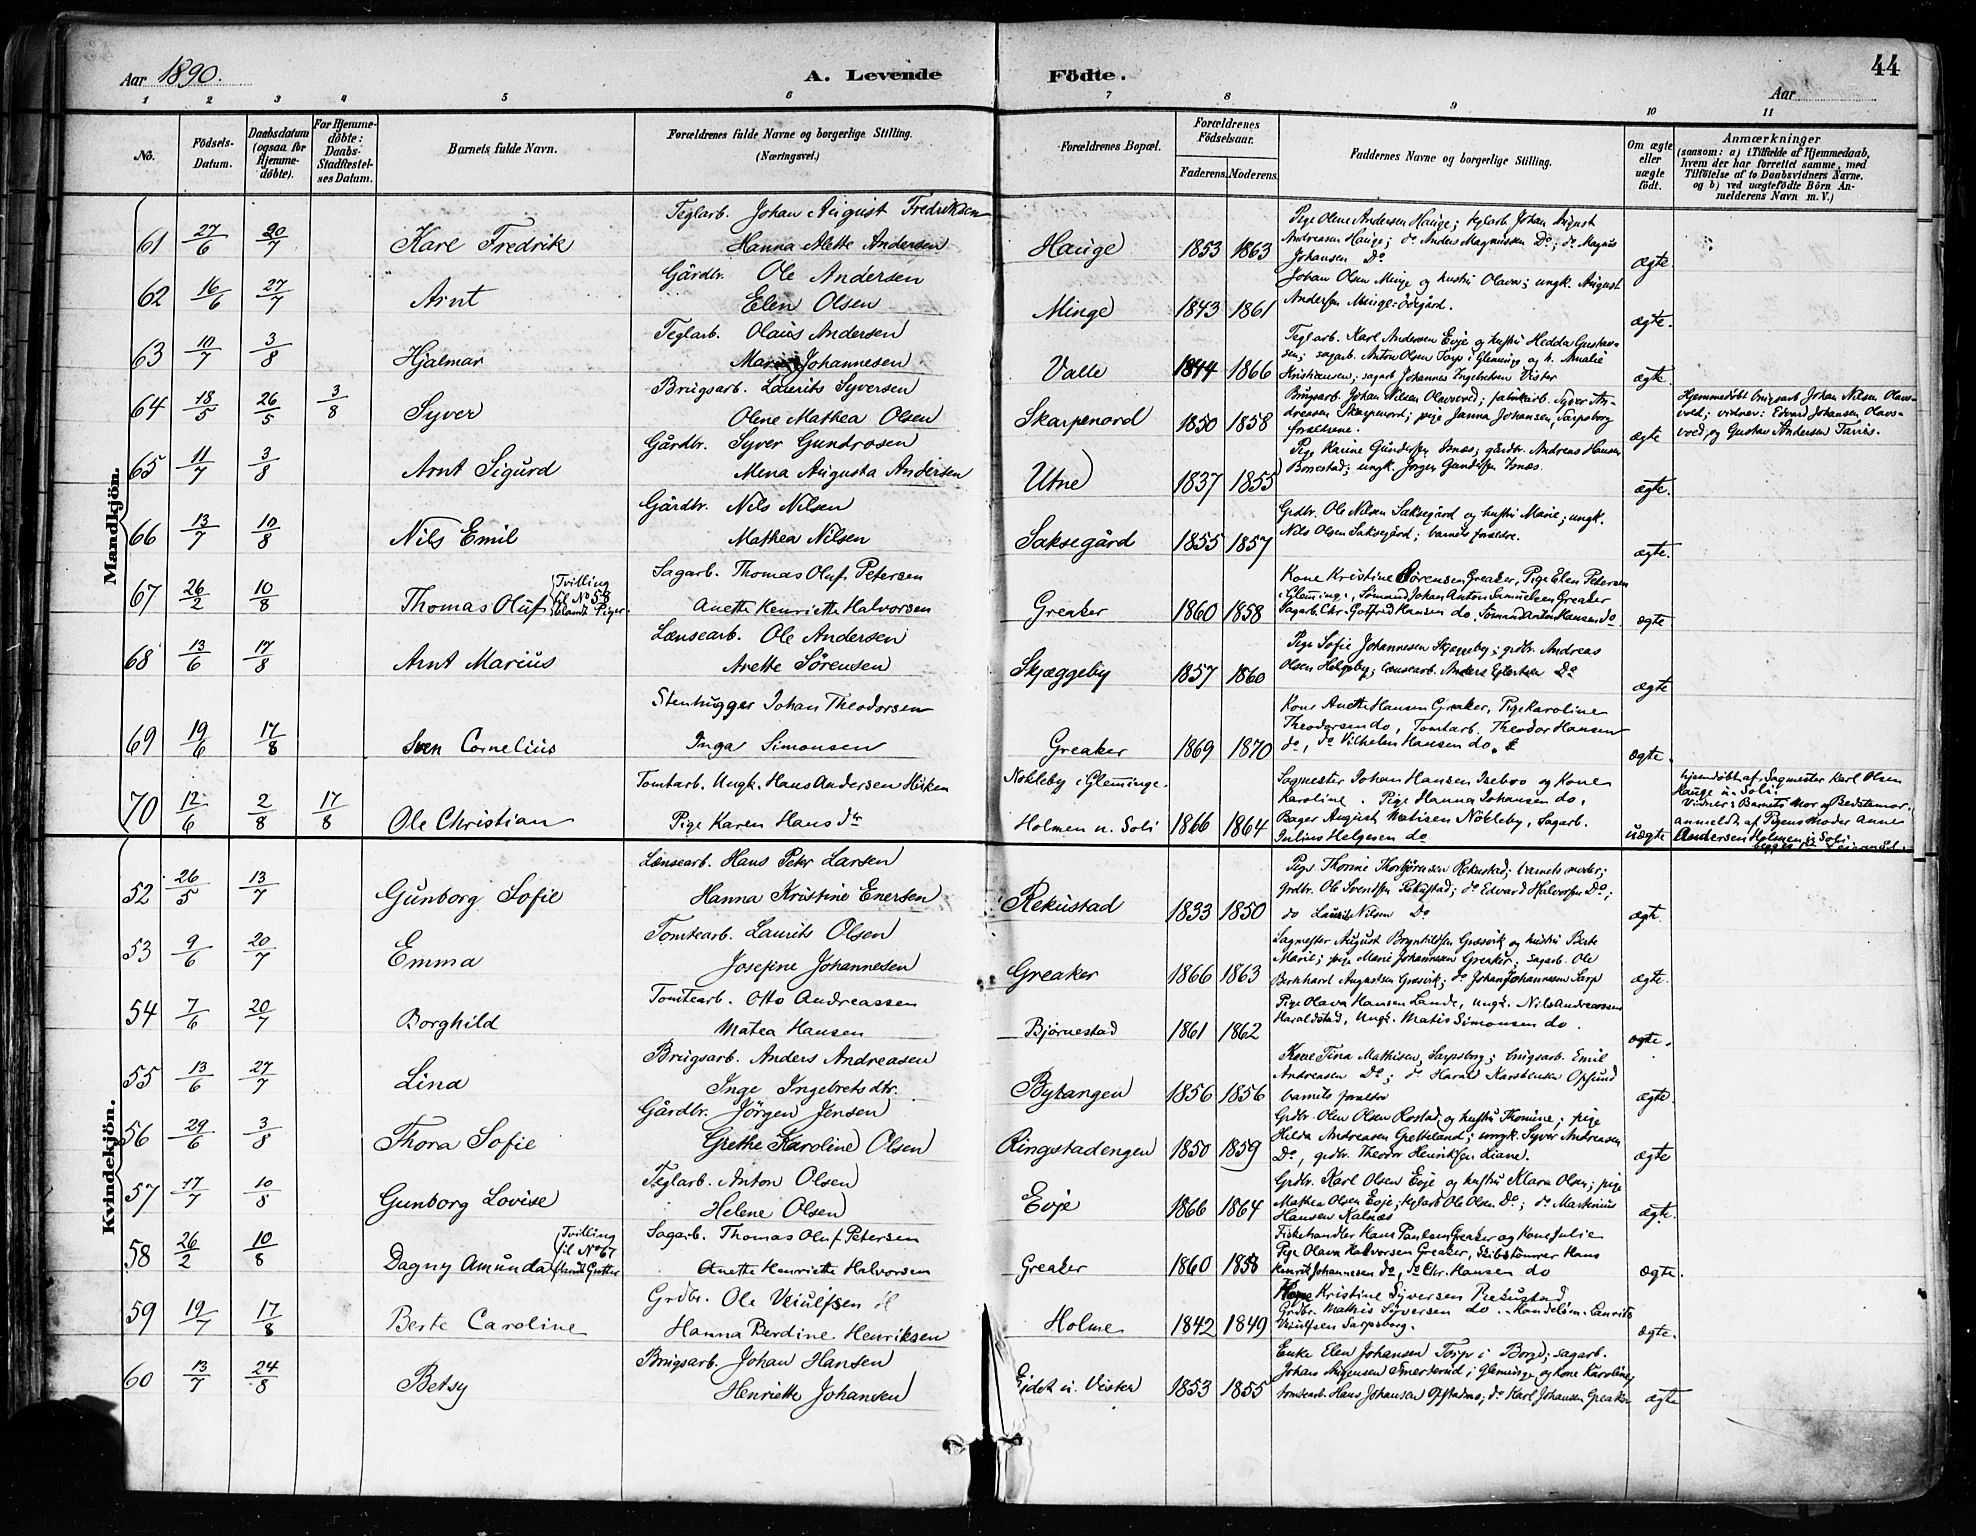 Aar 1890.
A. Levende Födte.
Aar
44
1 2 3 4 5 6 7 8 9 10 11
No.
Födsels-Datum.
Daabsdatum (ogsaa for Hjemme-döbte).
For Hjemme-döbte: Daabs-Stadfæstel-ses Datum.
Barnets fulde Navn.
Forældrenes fulde Navne og borgerlige Stilling. (Næringsvei.)
Forældrenes Bopæl.
Forældrenes Födselsaar.
Faderens. Moderens.
Faddernes Navne og borgerlige Stilling.
Om ægte eller uægte födt.
Anmærkninger (saasom: a) i Tilfælde af Hjemmedaab, hvem der har forrettet samme, med Tilföielse af to Daabsvidners Navne. og b) ved uægtefödte Börn An-melderens Navn m. V.)
Mandkjön.
61 27/6 20/7 Karl Fredrik Teglarb. Johan August Fredriksen
Hanna Alette Andersen Hauge 1853 1863 Pige Olene Andersen Hauge; teglarb. Johan August
Andreasen Hauge; do Anders Magnussen Do; do Magnus
Johansen Do ægte.
62 16/6 27/7 Arnt Gårdbr. Ole Andersen
Elen Olsen Minge 1843 1861 Johan Olsen Minge og hustru Olava; ungk. August
Andersen Minge-Ödegård. ægte.
63 10/7 3/8 Hjalmar Teglarb. Olaus Andersen
Marie Johannesen Valle 1844 1866 Teglarb. Karl Andersen Evje og hustru Hedda Gustav-
sen; sagarb. Anton Olsen Torp i Glemminge og h. Amalie
Kristiansen; sagarb Johannes Ingebretsen Vister ægte.
64 18/5 26/5 3/8 Syver Brugsarb. Laurits Syversen
Olene Mathea Olsen Skarpenord 1850 1858 Brugsarb. Johan Nilsen Olavsvold; fabrikarb. Syver An-
dreasen Skarpenord; pige Janna Johansen, Sarpsborg
forældrene. ægte Hjemmedöbt brugsarb Johan Nilsen Olavs-
vold; vidner: Edvard Johansen Olavs-
vold, og Gustav Andersen
65 11/7 3/8 Arnt Sigurd Gårdbr. Syver Gundrosen
Mena Augusta Andersen Utne 1837 1855 Pige Karine Gundersen Isnæs; gårdbr. Andreas Hansen
Borrestad; ungk. Jörgen Gundersen Isnæs. ægte.
66 13/7 10/8 Nils Emil Gårdbr. Nils Nilsen
Mathea Nilsen Saksegård 1855 1857 Grdbr. Ole Nilsen Saksegård og hustru Marie; ungk.
Nils Olsen Saksegård; barnets forældre. ægte.
67 26/2 10/8 Thomas Oluf (Tvilling til No 58 blandt Piger. Sagarb. Thomas Oluf Petersen
Anette Henriette Halvorsen Greaker 1860 1858 Kone Kristine Sörensen Greaker, Pige Elen Petersen
i Glemminge, Sömand Johan Anton Samuelsen Greaker
Sagarb. Chr. Gotfred Hansen do, Sömand Anton Hansen do ægte
68 13/6 17/8 Arnt Marius Lænsearb. Ole Andersen
Anette Sörensen Skjæggeby 1857 1860 Pige Sofie Johannesen Skjæggeby; grdbr. Andreas
Olsen Holgeby; lænsearb. Anders Eilertsen Do ægte
69 19/6 17/8 Sven Cornelius Stenhugger Johan Theodorsen
Inga Simonsen Greaker 1869 1870 Kone Anette Hansen Greaker, Pige Karoline
Theodorsen do, Tomtarb. Theodor Hansen
do, do Vilhelm Hansen do. ægte.
70 12/6 2/8 17/8 Ole Christian Tomtarb. Ungk. Hans Andersen
Pige Karen Hans dr Nökleby i Glemminge.
Holmen u. Soli 1866 1864 Sagmester Johan Hansen Iseboo og Kone
Karoline. Pige Hanna Johansen do,
Bager August Matisen Nökleby, Sagarb.
Julius Helgesen do uægte hjemdöbt af Sagmester Karl Olsen
Hauge u. Soli.
Vidner: Barnets Mor og Bedstemor.
anmeldt af Pigens Moder Anne
Andersen Holmen u. Soli
Kvindekjön.
52 26/5 13/7 Gunborg Sofie Lænsearb. Hans Peter Larsen
Hanna Kristine Enersen Rekustad 1833 1850 Pige Thorine Thorbjörnsen Rekustad; barnets moder;
grdbr. Ole Svendsen Rekustad; do Edvard Halvorsen Do;
do Laurits Nilsen Do ægt.
53 9/6 20/7 Emma Tomtearb. Laurits Olsen
Josefine Johannesen Greaker 1866 1863 Sagmester August Bryntildsen Græsvik og hustru Berte
Marie; pige Marie Johannesen Greaker; sagarb. Ole
Bernhard Augustsen Græsvik; do Johan Johannesen Sarp ægte.
54 7/6 20/7 Borghild Tomtearb. Otto Andreassen
Matea Hansen Björnestad 1861 1862 Pige Olava Hansen Lande, Ungk. Nils Andreassen
Haraldstad, Ungk. Matis Simonsen do. ægte.
55 13/6 27/7 Lina Brugsarb. Anders Andreasen
Inge Ingebretsdtr. Bytangen 1856 1856 Kone Tina Mathisen, Sarpsborg; brugsarb. Emil
Andreasen Do; do Harald Karstensen Opsund
barnets forældre ægte.
56 29/6 3/8 Thora Sofie Gårdbr. Jörgen Jensen
Grethe Karoline Olsen Ringstadengen 1850 1859 Grdbr. Olen Olsen Rostad og hustru Thomine; pige
Hilda Andreasen Grettland; ungk. Syver Andreasen
Do, grdbr. Theodor Henriksen Liane. ægte
57 17/7 10/8 Gunborg Lovise Teglarb. Anton Olsen
Helene Olsen Evje 1866 1864 Grdbr. Karl Olsen Evje og hustru Klara Olsen; pige
Mathea Olsen Evje; teglarb Ole Olsen Do; do Martinius
Hansen Kalnæs ægte.
58 26/2 10/8 Dagny Amunda (Tvilling til No 67 blandt Gutter Sagarb. Thomas Oluf Petersen
Anette Henriette Halvorsen Greaker 1860 1858 Fiskehandler Hans Paulsen Greaker og Kone Julie
Pige Olava Halvorsen Greaker, Skibstömrer Hans
Henrik Johannesen do, do Chr. Hansen do ægte.
59 19/7 17/8 Berte Caroline Grdbr. Ole Veiulfsen H
Hanna Berdine Henriksen Holme 1842 1849 Kone Kristine Syversen Rekustad
Grdbr. Mathis Syversen do. Handelsm. Laurits
Veiulfsen Sarpsborg. ægte.
60 13/7 24/8 Betsy Brugsarb. Johan Hansen
Henriette Johansen Eidet u. Vister 1853 1855 Enke Elen Johansen Torp i Borge; sagarb.
Johan Augensen Smertenæs i Glemminge og Kone Karoline;
tomtearb. Hans Johansen Opstadmo; do Karl Johansen Greaker ægte